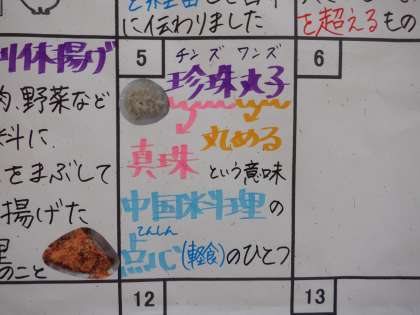 に伝わりました
を超えるもの
揚げ
肉、野菜など
料に
をまぶして
揚げた
のこと
5
チンズ ワンズ
珍珠丸子
真珠 丸める
という意味
中国料理の
てんしん
点心(軽食)のひとつ
6
12
13